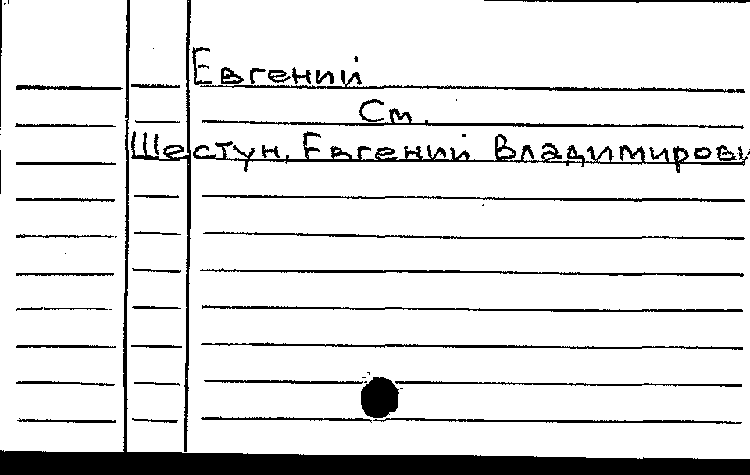 Евгений
См.
Шестун, Евгений Владимирови